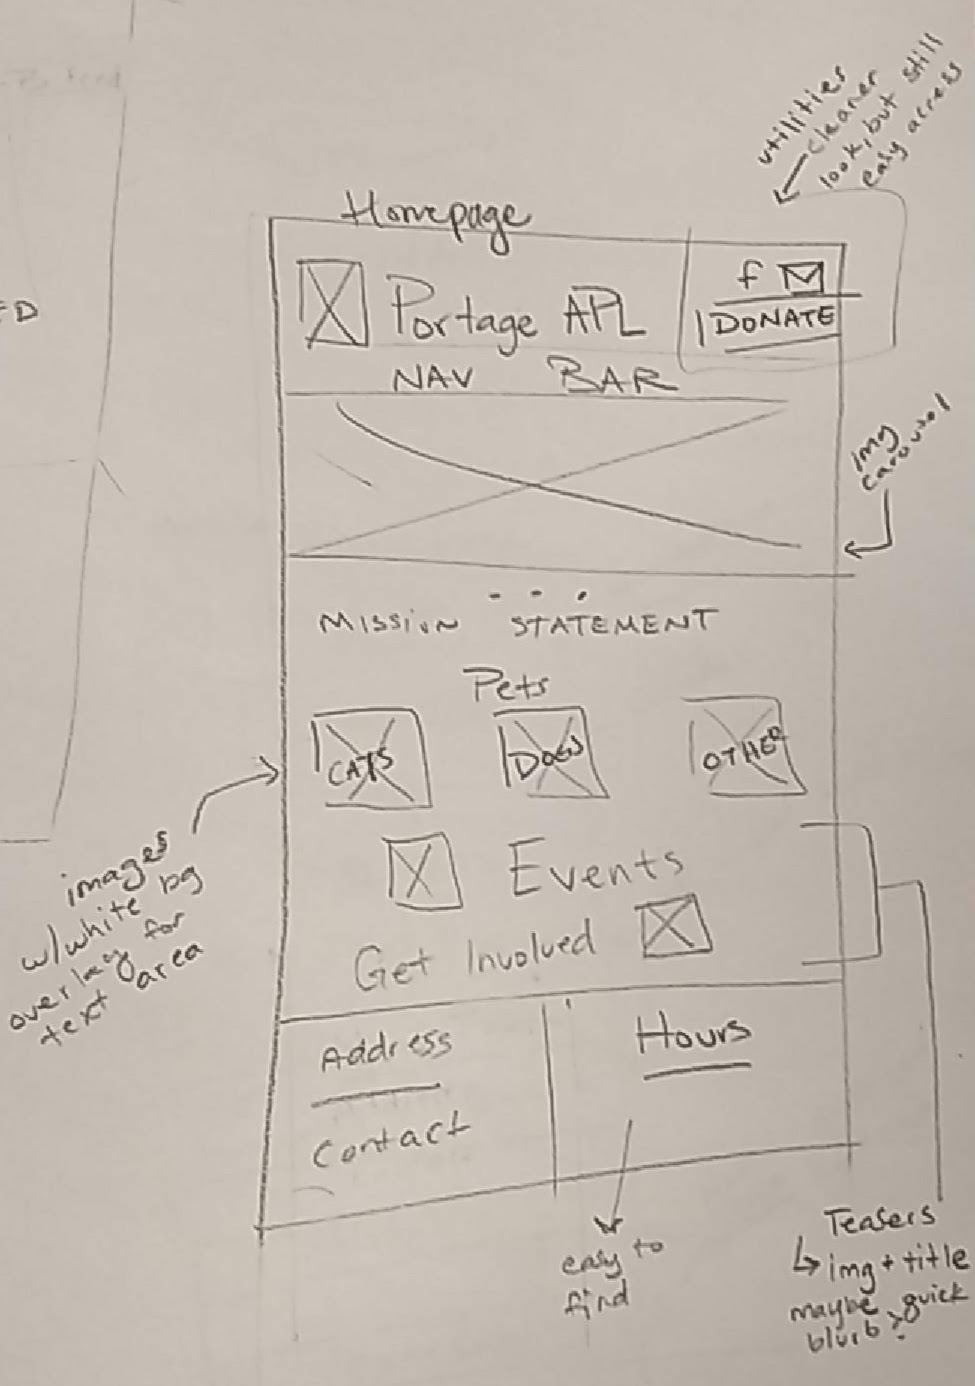 utilities
cleaner
look, but still
easy access
ED
Homepage
f
Portage APL
DONATE
NAV BAR
img
carousel
MISSION STATEMENT
Pets
CATS
DOGS
OTHER
images
w/white bg
overlay for
text area
Events
Get Involved
Address
Hours
Contact
easy to
find
Teasers
img + title
maybe quick
blurb?